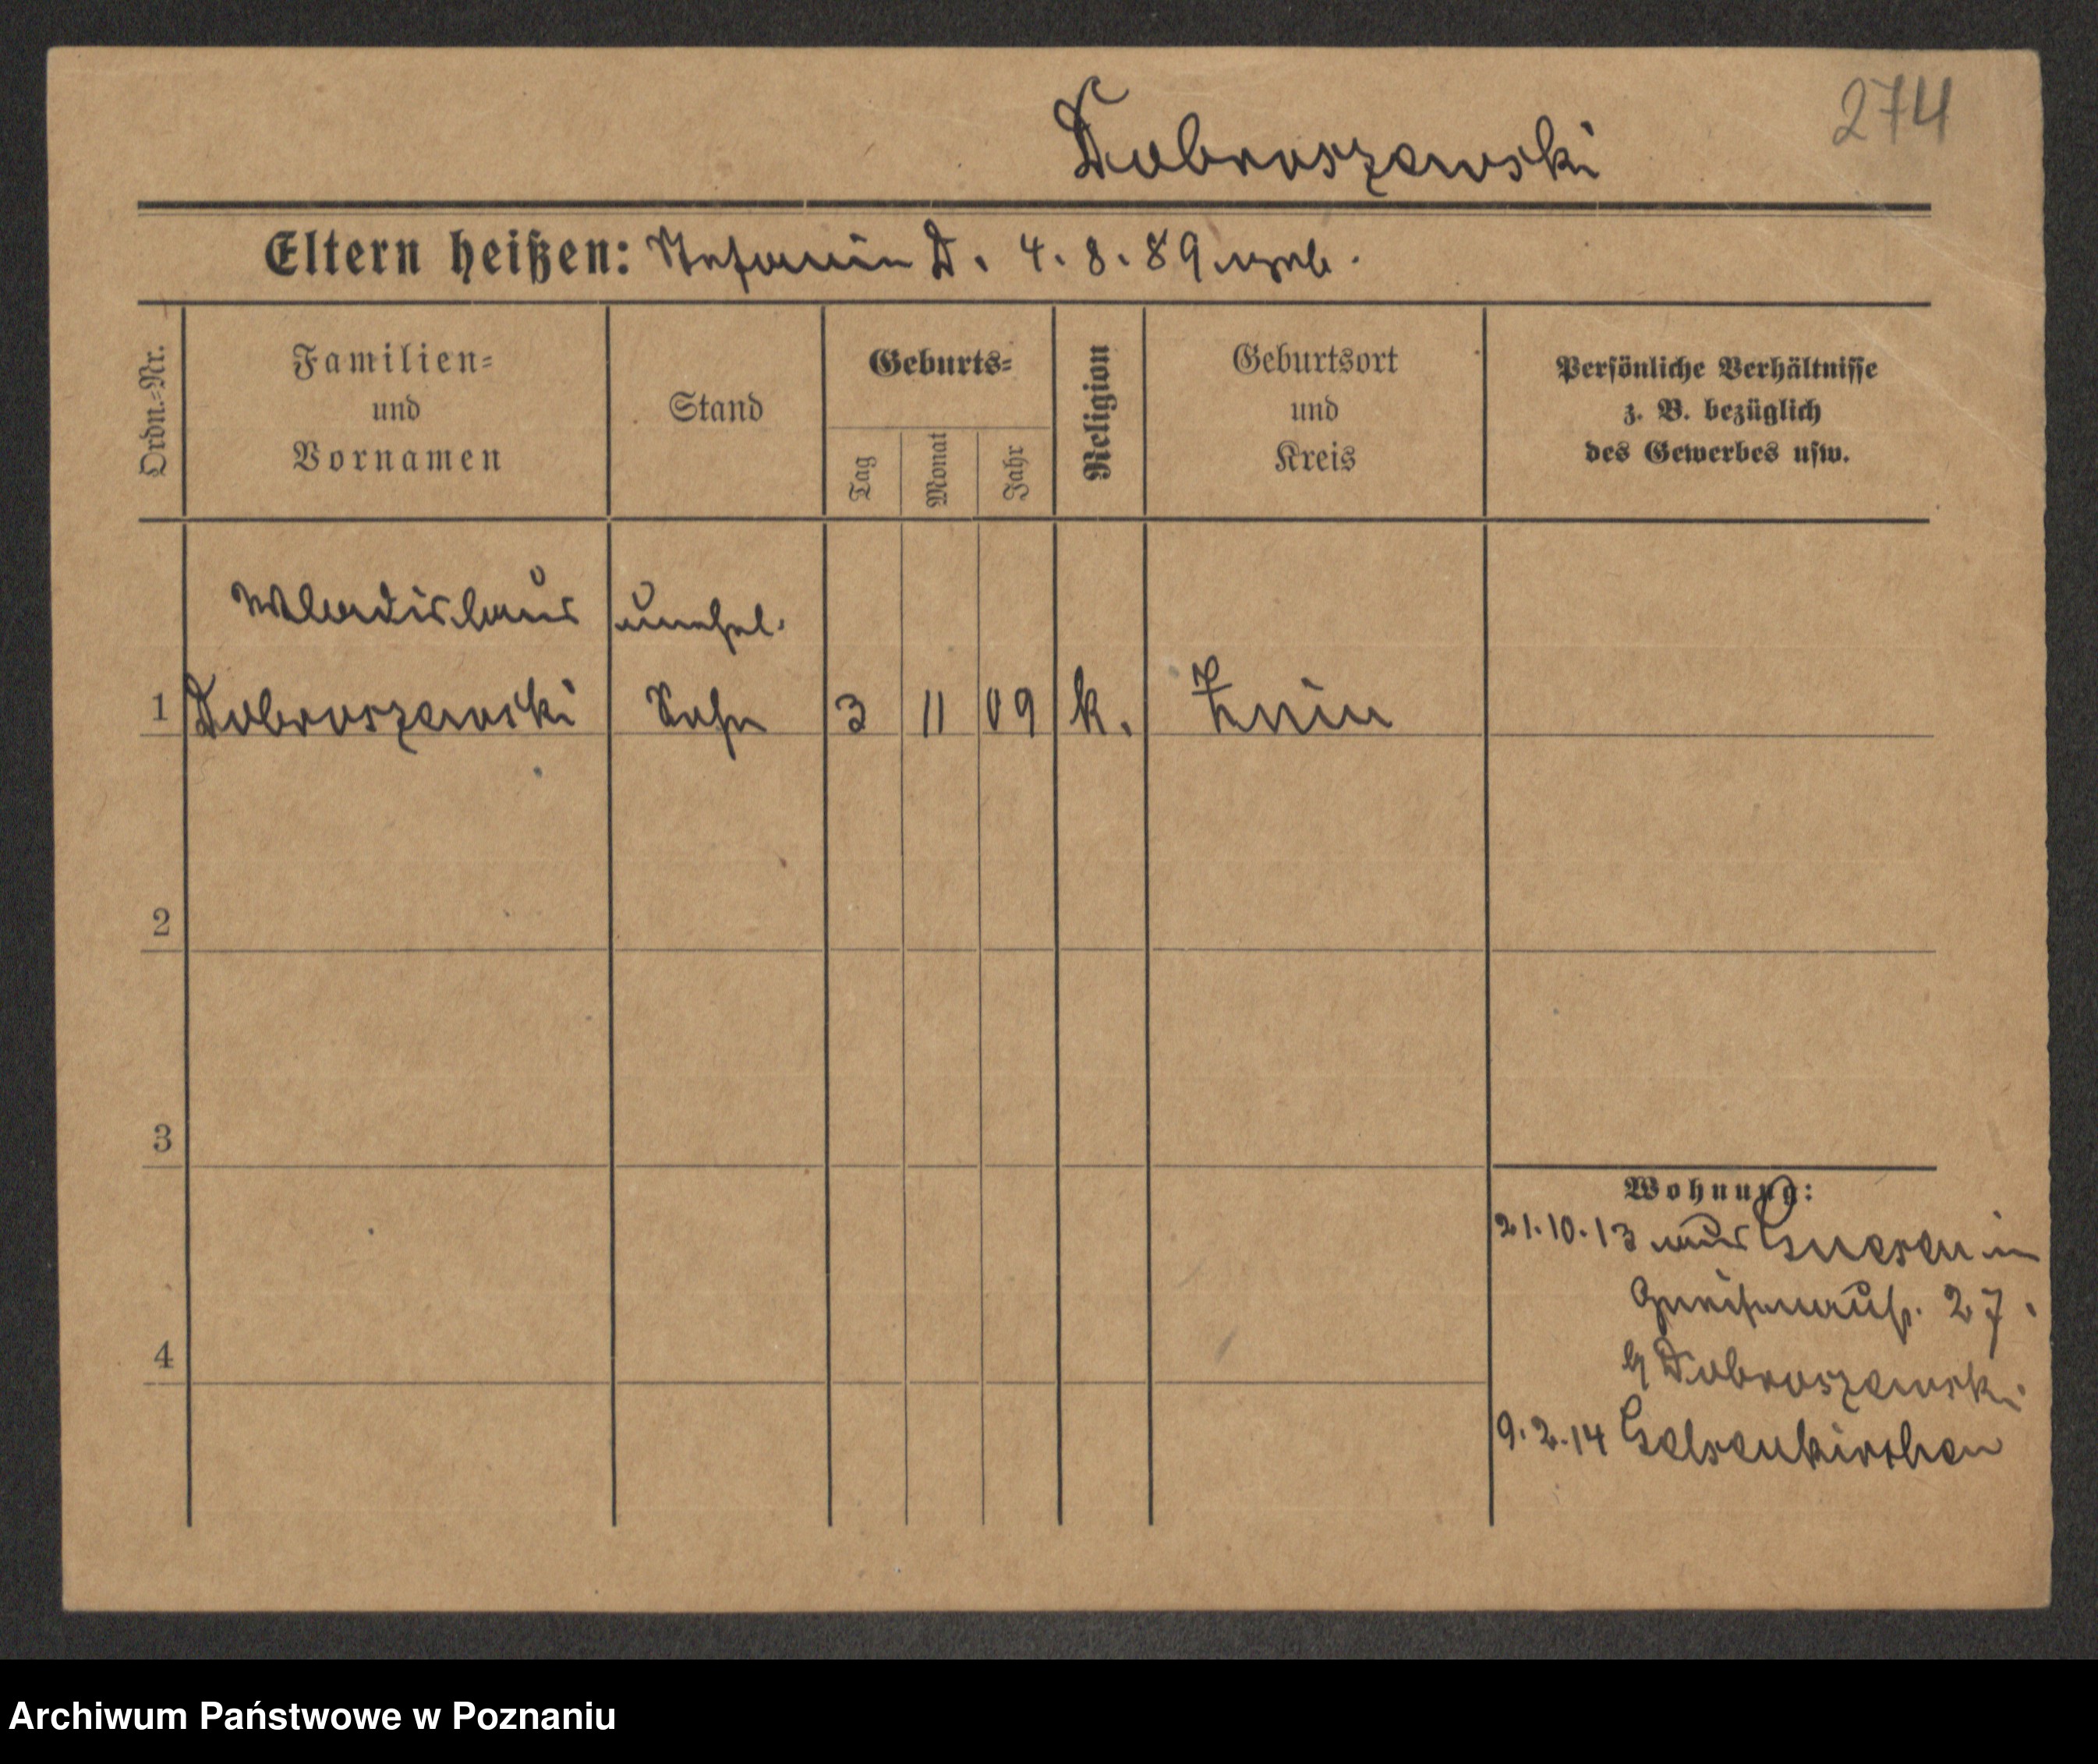 274
Dobroszewski
Eltern heißen: Stefania D. 4. 8. 89 geb.
Ordn.-Nr.
Familien-
und
Vornamen
Stand
Geburts-
Tag
Monat
Jahr
Religion
Geburtsort
und
Kreis
Persönliche Verhältnisse
z. B. bezüglich
des Gewerbes usw.
Wladislaus unehel.
1 Dobroszewski Sohn 3 11 09 k. Znin
2
3
Wohnung:
21.10.13 aus Gnesen in
Gneisenaust. 27.
b/ Dobroszewski
4
9.2.14 Gelsenkirchen
Archiwum Państwowe w Poznaniu